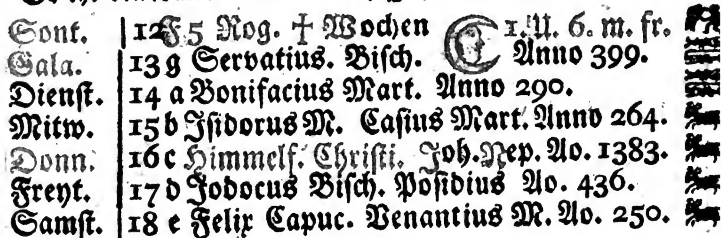 Sont. 12 F 5 Rog. † Wochen 1. U. 6. m. fr.
Gala. 13 g Servatius. Bisch. Anno 399.
Dienst. 14 a Bonifacius Mart. Anno 290.
Mitw. 15 b Isidorus M. Casius Mart. Anno 264.
Donn. 16 c Himmelf. Christi. Joh. Nep. Ao. 1383.
Freyt. 17 d Jodocus Bisch. Posidius Ao. 436.
Samst. 18 e Felix Capuc. Venantius M. Ao. 250.